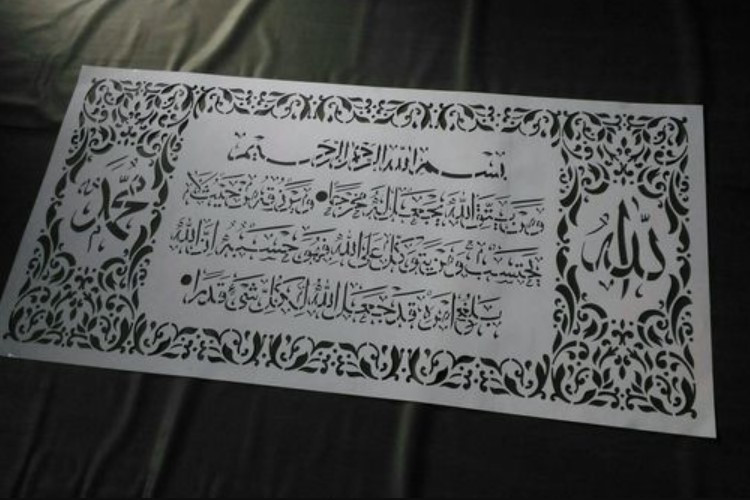 الله
بسم الله الرحمن الرحيم
ومن يتق الله يجعل له مخرجا ويرزقه من حيث لا
يحتسب ومن يتوكل على الله فهو حسبه ان الله
بالغ امره قد جعل الله لكل شيء قدرا
محمد